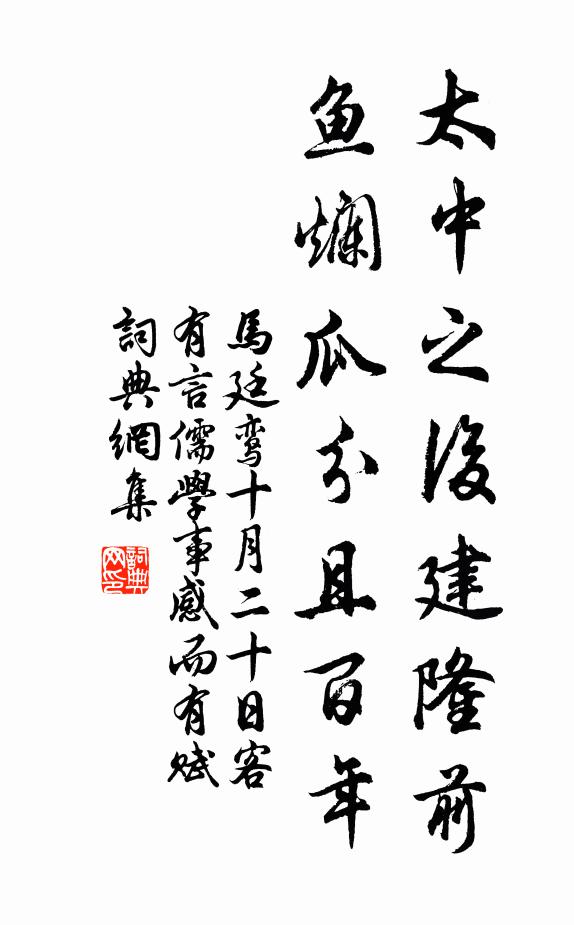 太中之後建隆前
鱼爛瓜分且百年
馬廷鸾十月二十日客
有言儒學事感而有赋
詞典網集
詞典网印